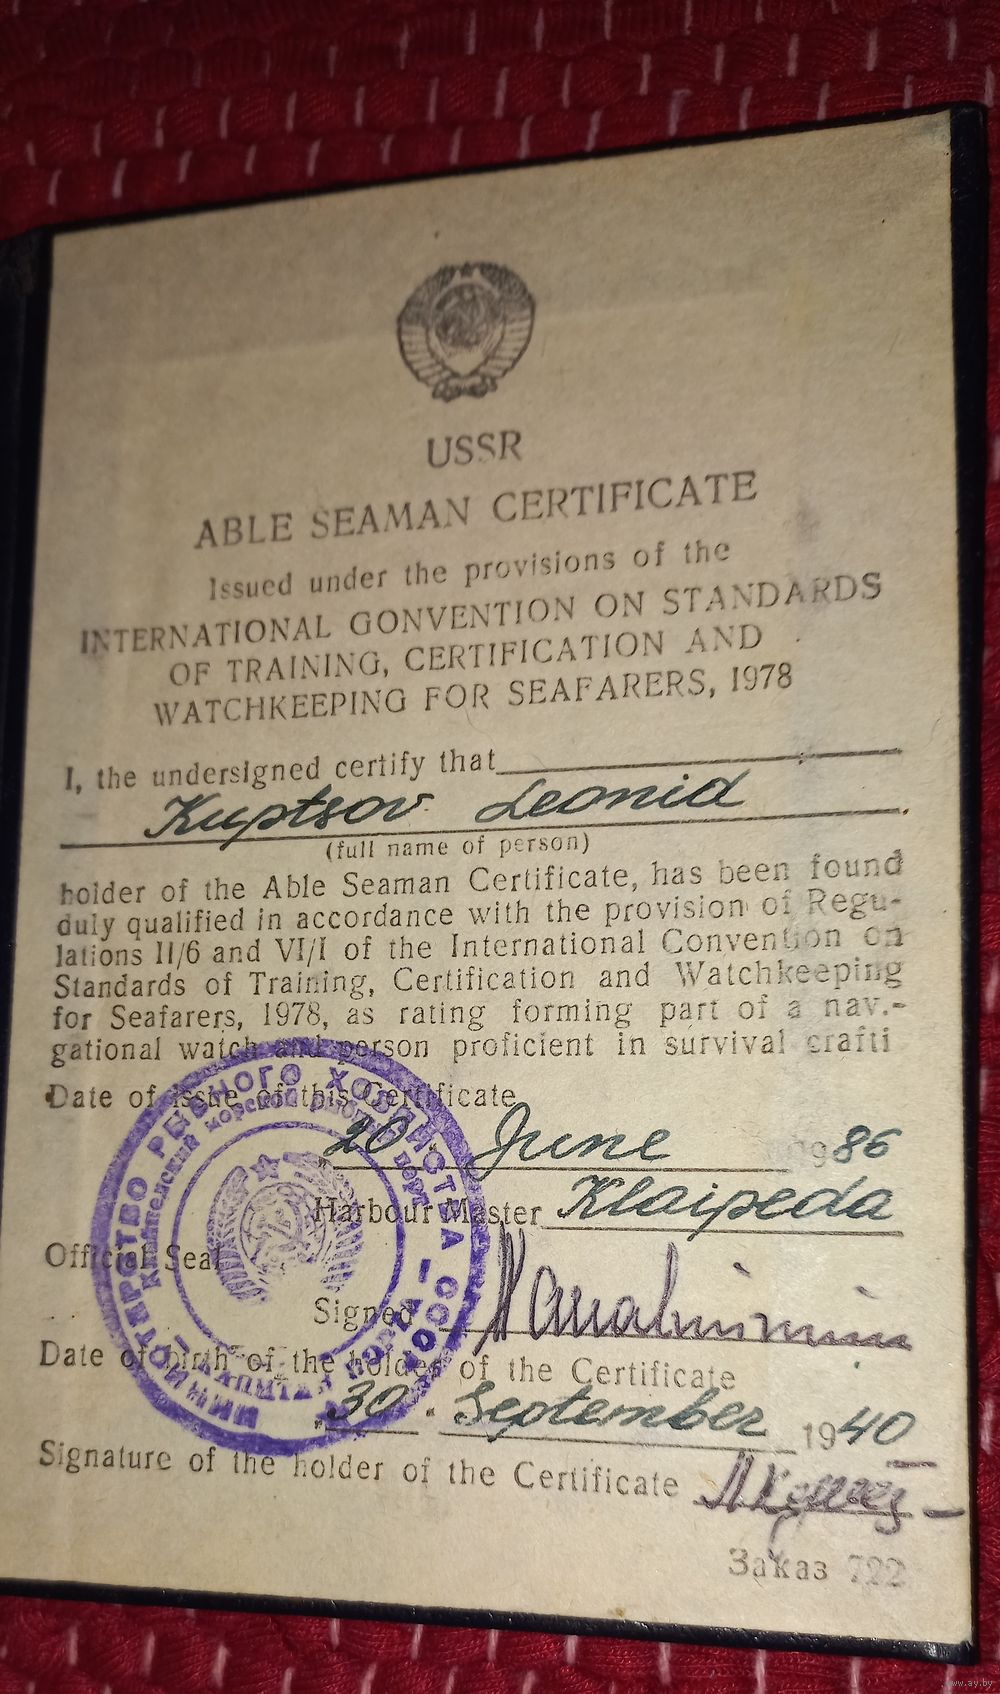 USSR
ABLE SEAMAN CERTIFICATE
Issued under the provisions of the
INTERNATIONAL GONVENTION ON STANDARDS
OF TRAINING, CERTIFICATION AND
WATCHKEEPING FOR SEAFARERS, 1978
I, the undersigned certify that
Kuptsov Leonid
(full name of person)
holder of the Able Seaman Certificate, has been found
duly qualified in accordance with the provision of Regu-
lations II/6 and VI/I of the International Convention on
Standards of Training, Certification and Watchkeeping
for Seafarers, 1978, as rating forming part of a nav.-
gational watch and person proficient in survival crafti
Date of issue of this Certificate
20 June 1986
Harbour Master Klaipeda
Official Seal
Signed
Date of birth of the holder of the Certificate
30 September 1940
Signature of the holder of the Certificate
Заказ 722
МИНИСТЕРСТВО РЫБНОГО ХОЗЯЙСТВА СССР
www.ay.by